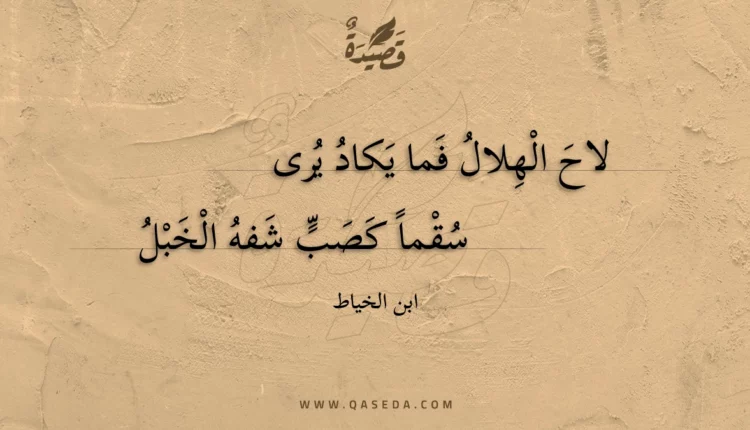 قَصِيدَةٌ
لاحَ الْهِلالُ فَما يَكادُ يُرى
سُقْماً كَصَبٍّ شَفهُ الْخَبْلُ
ابن الخياط
WWW.QASEDA.COM